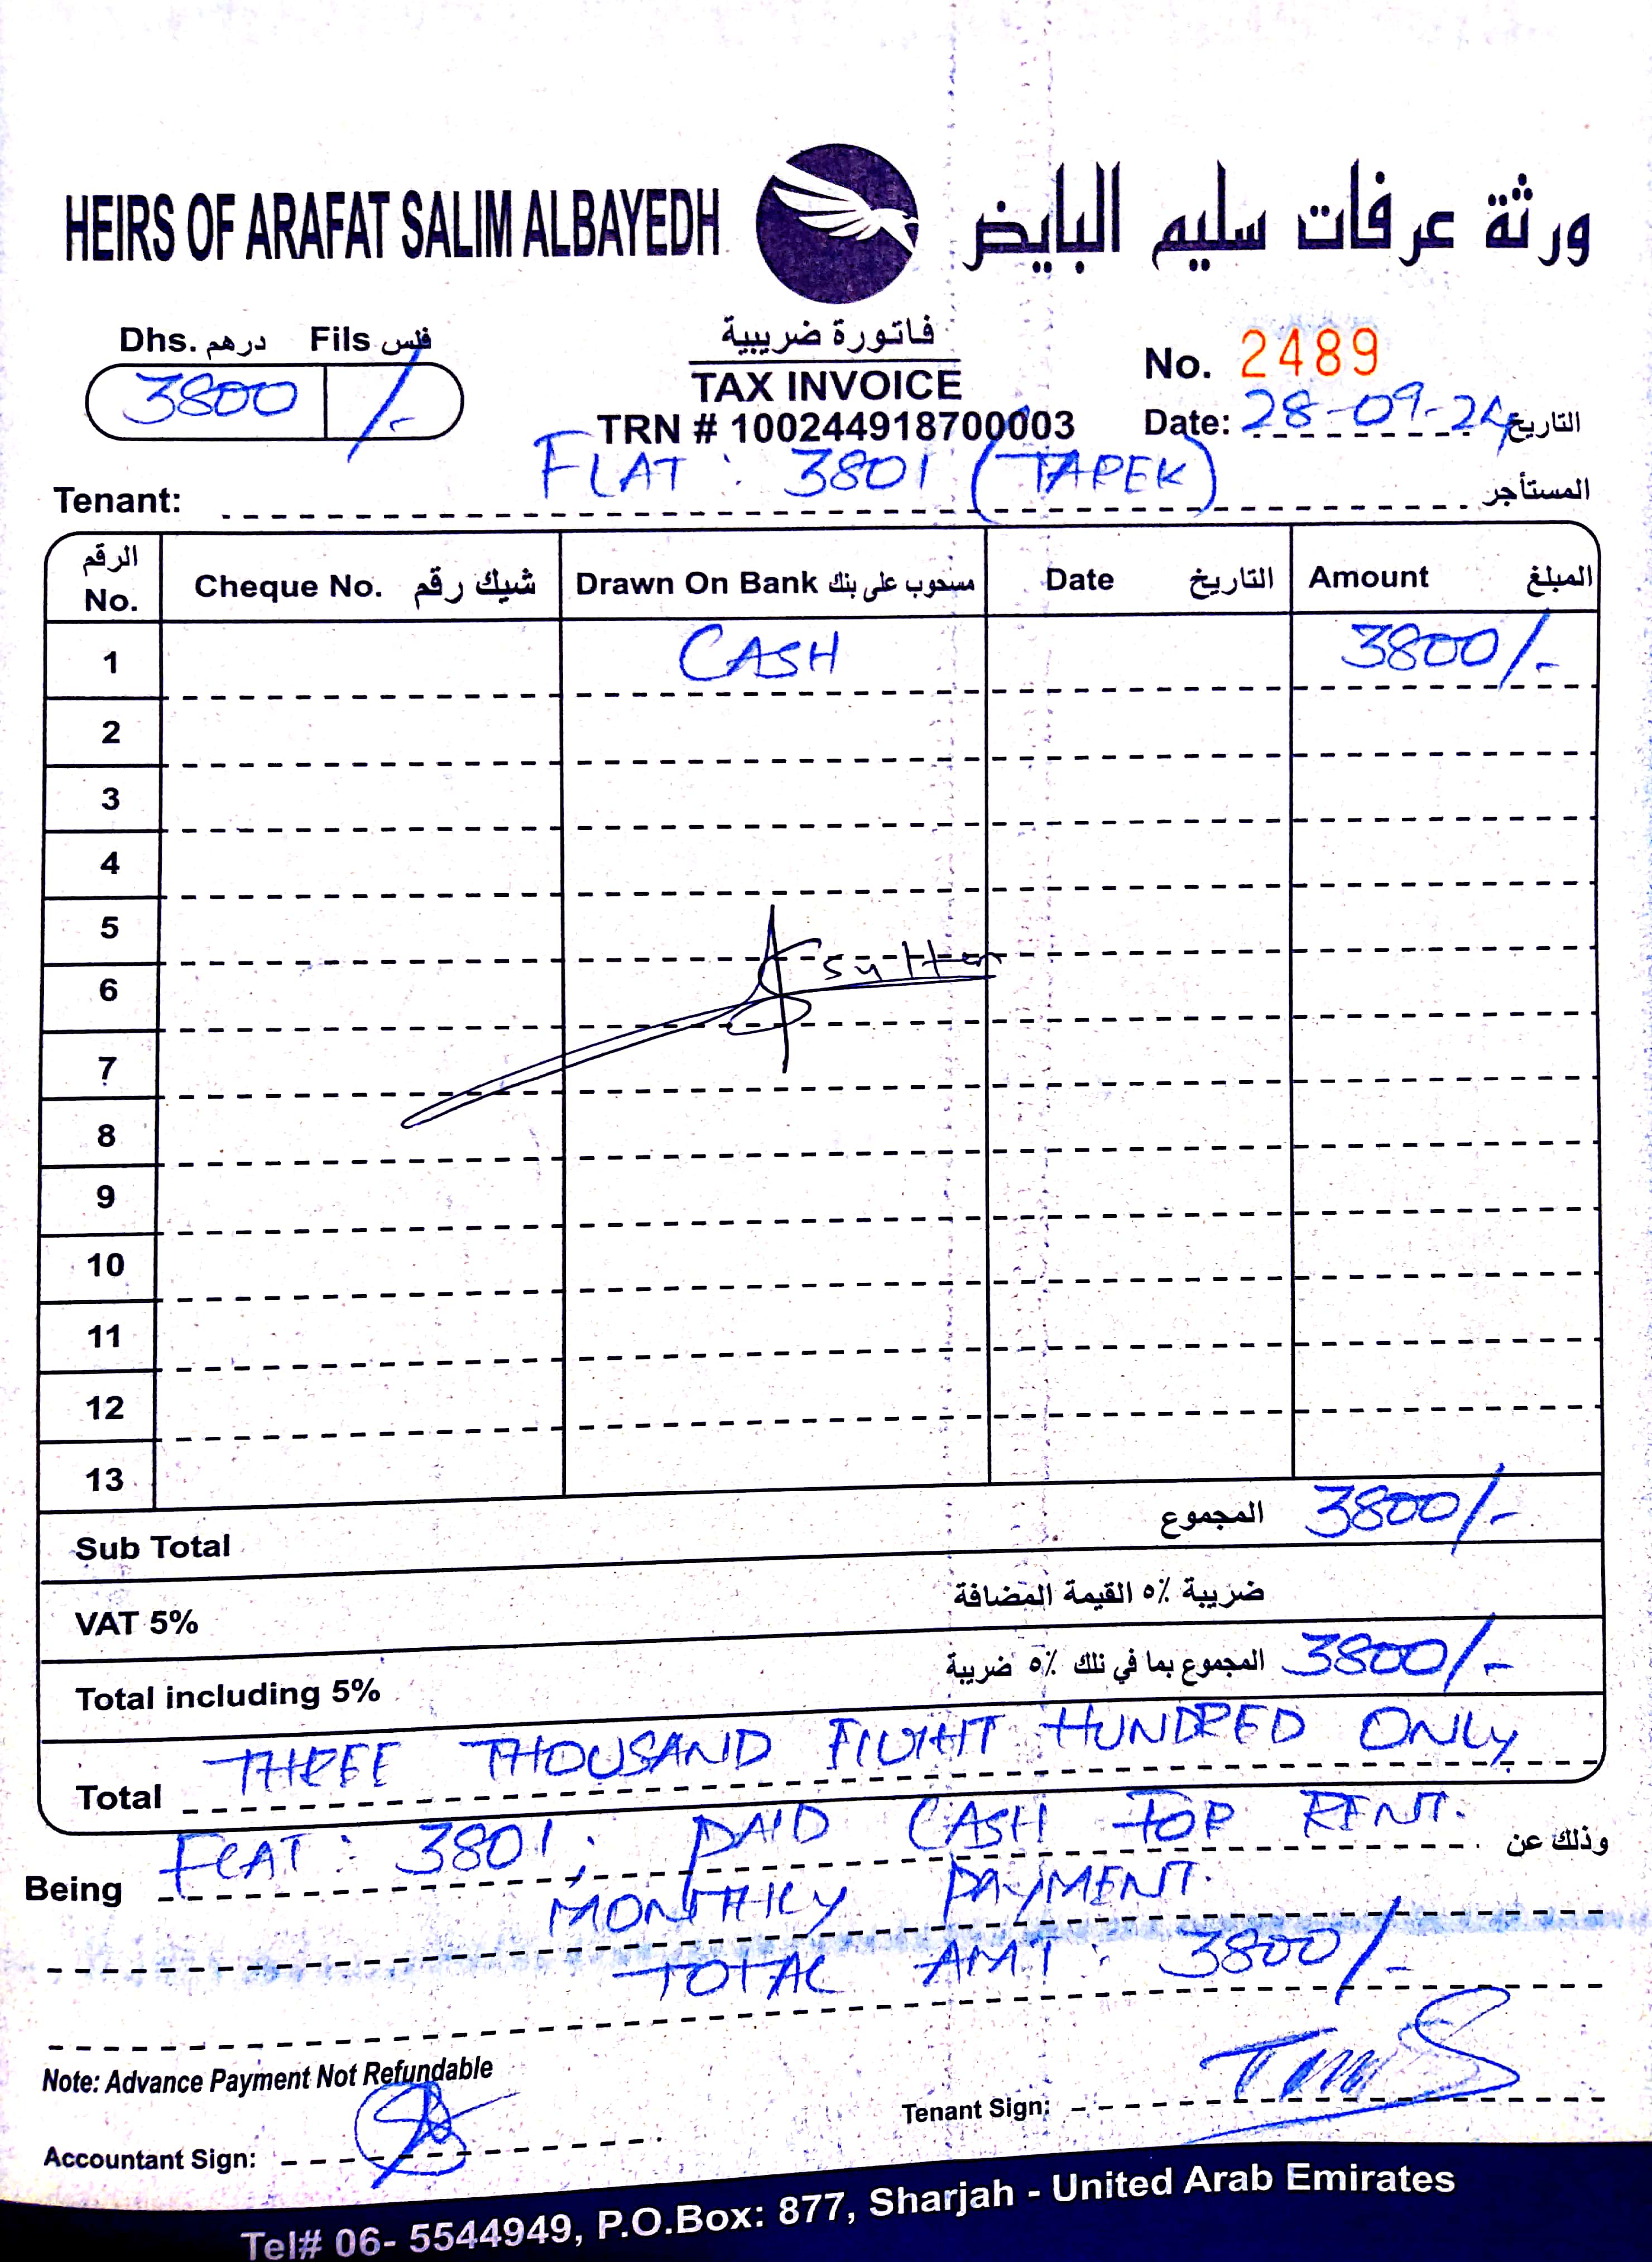 HEIRS OF ARAFAT SALIM ALBAYEDH ورثة عرفات سليم البايض
Dhs. درهم Fils فلس
3800 /-
فاتورة ضريبية
TAX INVOICE
TRN # 100244918700003
No. 2489
Date: 28-09-24 التاريخ
Tenant: FLAT : 3801 (TAREK) المستأجر
الرقم No. Cheque No. شيك رقم Drawn On Bank مسحوب على بنك Date التاريخ Amount المبلغ
1 CASH 3800/-
2
3
4
5
6
7
8
9
10
11
12
13
Sub Total المجموع 3800/-
VAT 5% ضريبة ٥٪ القيمة المضافة
Total including 5% المجموع بما في نلك ٥٪ ضريبة 3800/-
Total THREE THOUSAND EIGHT HUNDRED ONLY
Being FLAT : 3801, PAID CASH FOR RENT. وذلك عن
MONTHLY PAYMENT.
TOTAL AMT : 3800/-
Note: Advance Payment Not Refundable
Tenant Sign:
Accountant Sign:
Tel# 06- 5544949, P.O.Box: 877, Sharjah - United Arab Emirates